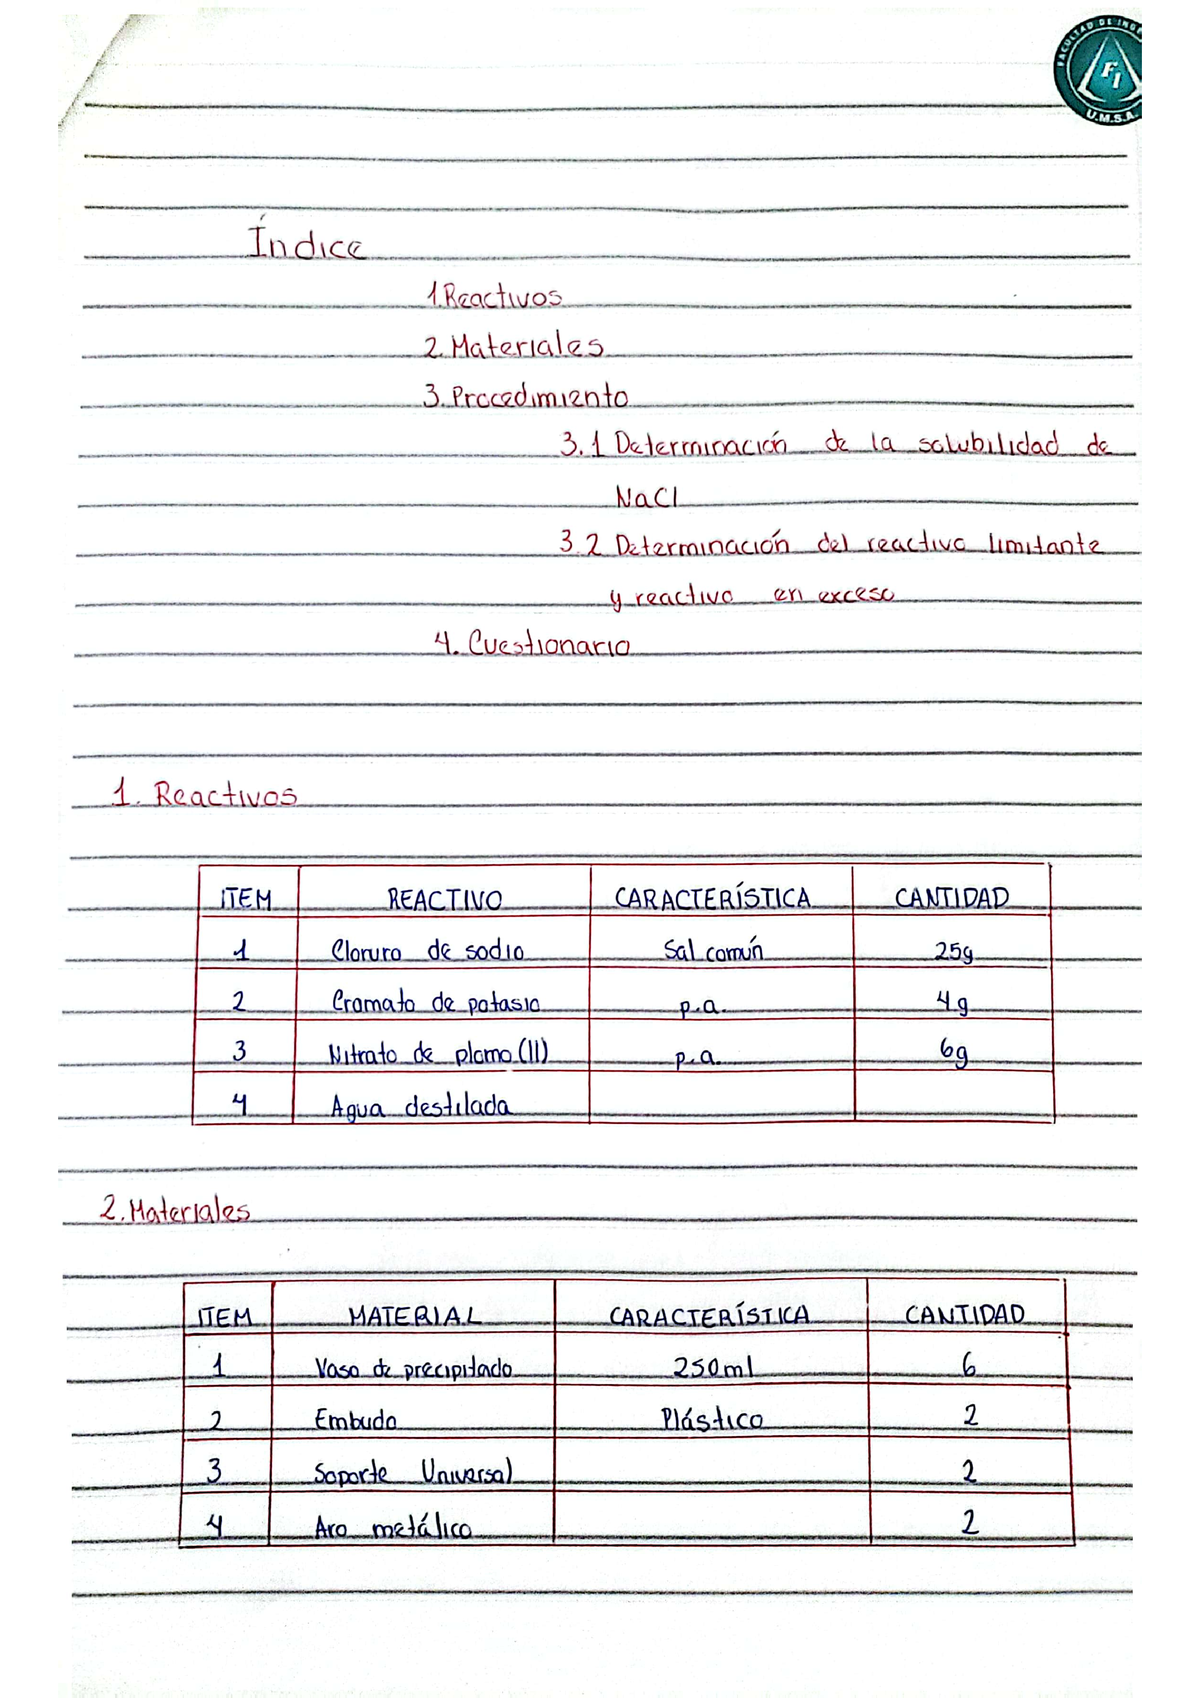 FACULTAD DE INGE
FI
U.M.S.A.
Índice
1.Reactivos
2.Materiales
3.Procedimiento
3.1 Determinación de la solubilidad de
NaCl
3.2 Determinación del reactivo limitante
y reactivo en exceso
4. Cuestionario
1. Reactivos
ITEM REACTIVO CARACTERÍSTICA CANTIDAD
1 Cloruro de sodio Sal común 25g
2 Cromato de potasio p.a. 4g
3 Nitrato de plomo(II) p.a. 6g
4 Agua destilada
2.Materiales
ITEM MATERIAL CARACTERÍSTICA CANTIDAD
1 Vaso de precipitado 250ml 6
2 Embudo Plástico 2
3 Soporte Universal 2
4 Aro metálico 2